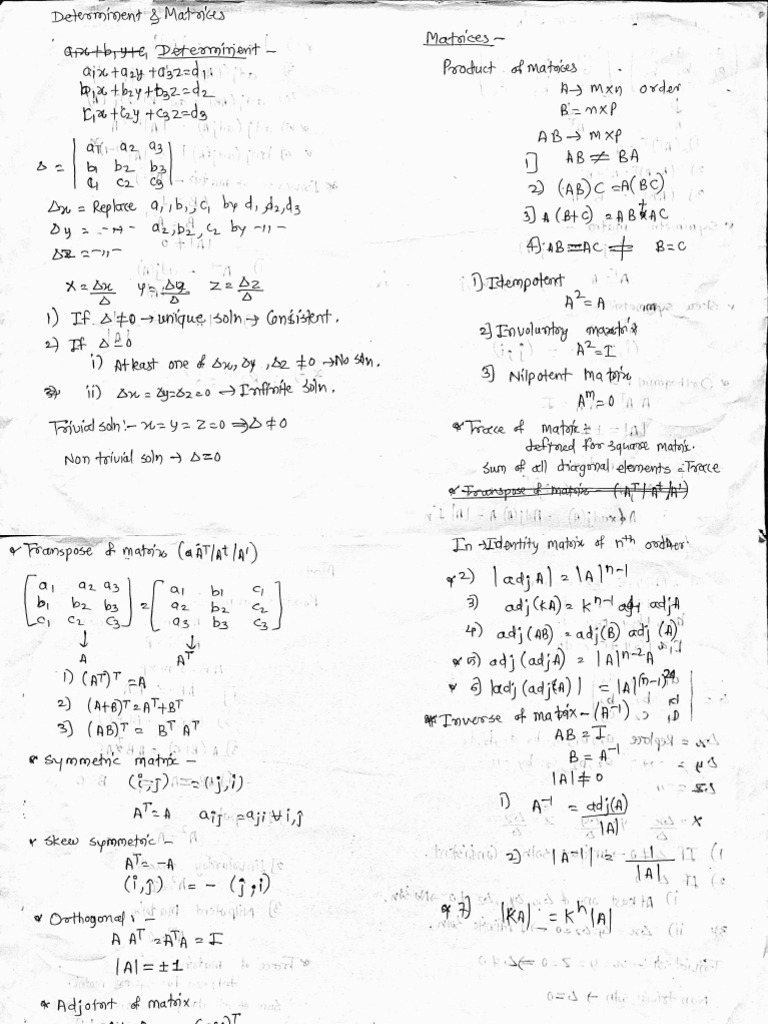 Determinent & Matrices
a₁x+b₁y+c₁ Determinient -
a₁x+a₂y+a₃z=d₁
b₁x+b₂y+b₃z=d₂
c₁x+c₂y+c₃z=d₃
Δ = | a₁ a₂ a₃ |
| b₁ b₂ b₃ |
| c₁ c₂ c₃ |
Δx = Replace a₁, b₁, c₁ by d₁, d₂, d₃
Δy = -〃- a₂, b₂, c₂ by -〃-
Δz = -〃-
X = Δx/Δ y = Δy/Δ Z = Δz/Δ
1) If Δ ≠ 0 → unique soln → Consistent.
2) If Δ = 0
i) Atleast one of Δx, Δy, Δz ≠ 0 → No sln.
ii) Δx = Δy = Δz = 0 → Infinite soln.
Trivial soln:- x = y = z = 0 ⇒ Δ ≠ 0
Non trivial soln → Δ = 0
Matrices -
Product of matrices
A → m×n order
B = n×p
AB → m×p
1) AB ≠ BA
2) (AB)C = A(BC)
3) A(B+C) = AB+AC
4) AB = AC ≠ B=C
1) Idempotent
A² = A
2) Involuntory matrix
A² = I
3) Nilpotent Matrix
Aᵐ = 0
* Trace of matrix -
defined for square matrix.
Sum of all diagonal elements = Trace
* Transpose of matrix - (Aᵀ/Aᵗ/A')
* Transpose of matrix (Aᵀ/Aᵗ/A')
[ a₁ a₂ a₃ ] = [ a₁ b₁ c₁ ]
[ b₁ b₂ b₃ ] [ a₂ b₂ c₂ ]
[ c₁ c₂ c₃ ] [ a₃ b₃ c₃ ]
↓ ↓
A Aᵀ
1) (Aᵀ)ᵀ = A
2) (A+B)ᵀ = Aᵀ+Bᵀ
3) (AB)ᵀ = Bᵀ Aᵀ
* Symmetric matrix -
(i,j) = (j,i)
Aᵀ = A aij = aji ∀ i,j
* Skew symmetric -
Aᵀ = -A
(i,j) = - (j,i)
* Orthogonal :
A Aᵀ = AᵀA = I
|A| = ±1
* Adjotnt of matrix
In → Identity matrix of nᵗʰ order
*2) |adjA| = |A|ⁿ⁻¹
3) adj(KA) = Kⁿ⁻¹ adjA
4) adj(AB) = adj(B) adj(A)
*5) adj(adjA) = |A|ⁿ⁻²A
*6) |adj(adj(A)| = |A|⁽ⁿ⁻¹⁾²
* Inverse of matrix - (A⁻¹)
AB = I
B = A⁻¹
|A| ≠ 0
1) A⁻¹ = adj(A)/|A|
2) |A⁻¹| = 1/|A|
*7) |KA| = Kⁿ|A|